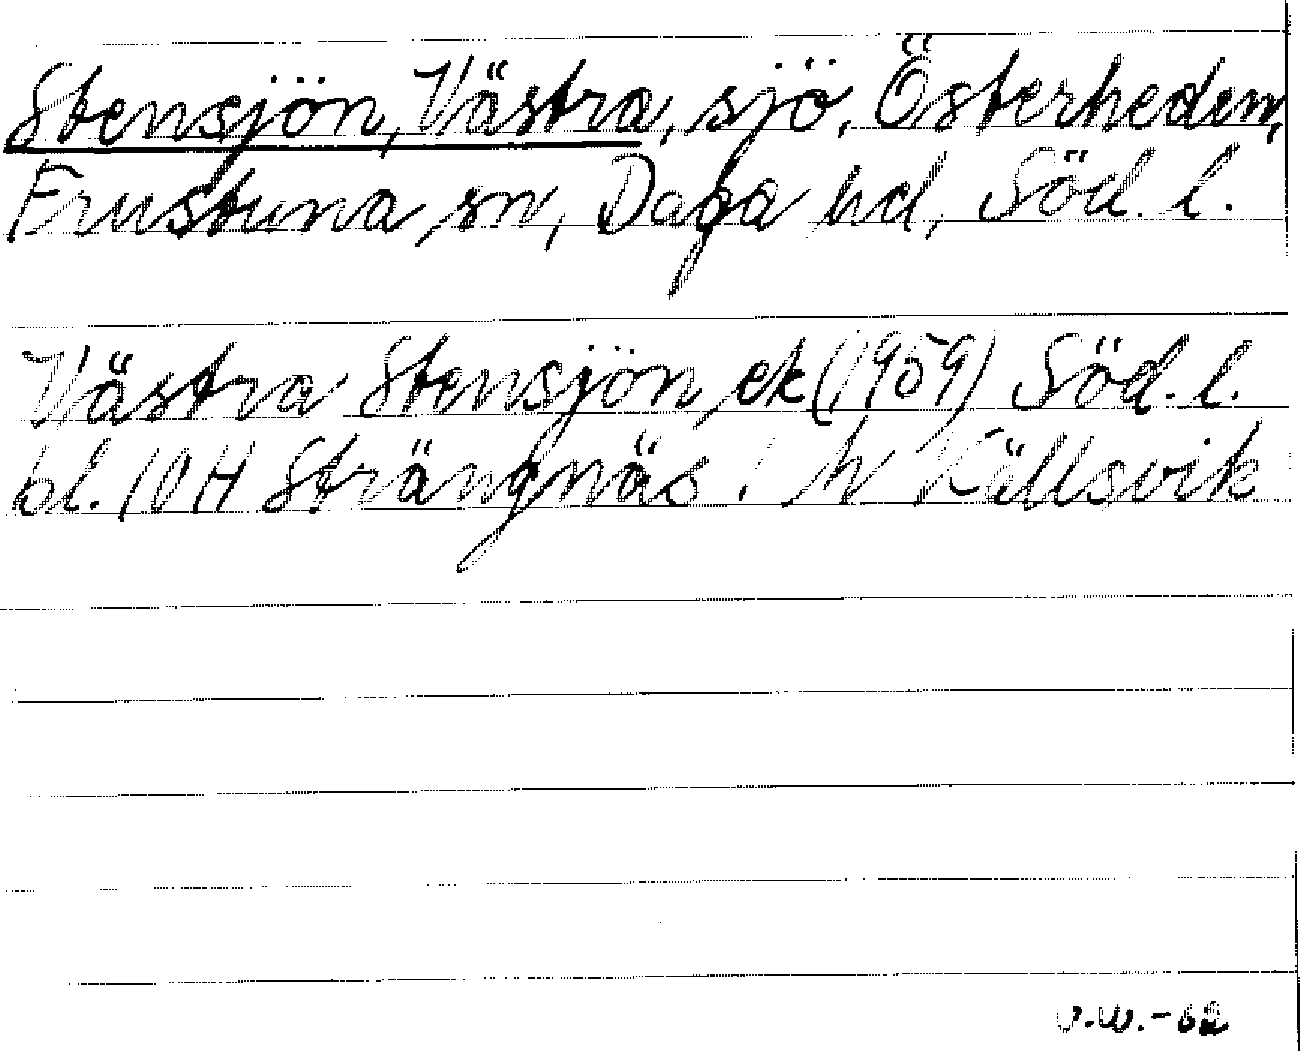 Stensjön, Västra, sjö, Österheden,
Frustuna sn, Daga hd, Söd. l.
Västra Stensjön, ek (1959) Söd. l.
bl. 10H Strängnäs. h Källsvik
U.W.-62